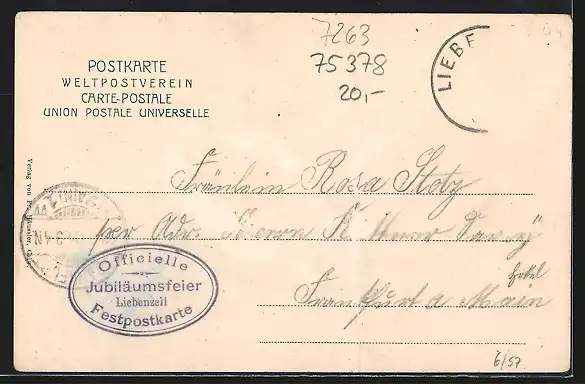 7263
75378
20,-
LIEBE
POSTKARTE
WELTPOSTVEREIN
CARTE-POSTALE
UNION POSTALE UNIVERSELLE
Fräulein Rosa Stotz
per Adr. Herrn
Hotel
Frankfurt a Main
Verlag von
3-4N
Officielle
Jubiläumsfeier
Liebenzell
Festpostkarte
6/57